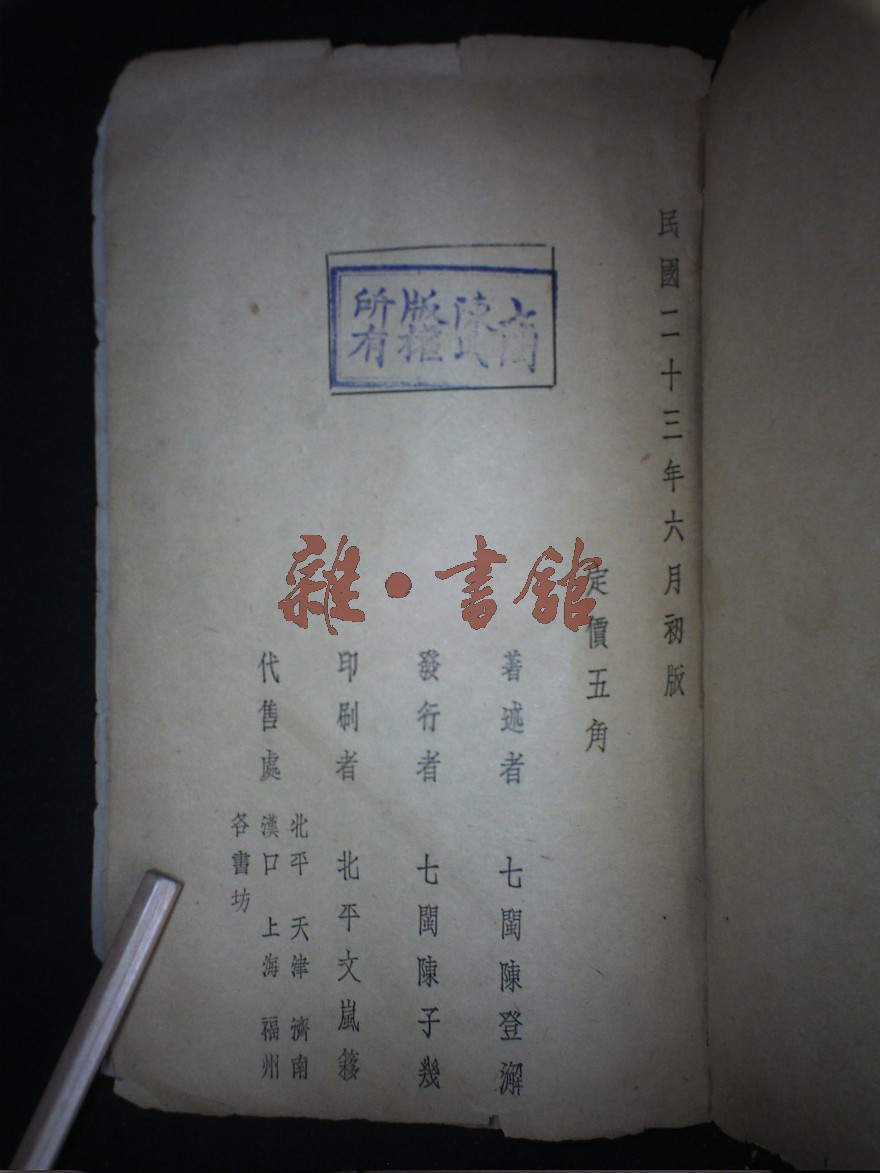 民國二十三年六月初版
定價五角
著述者 七閩陳登澥
發行者 七閩陳子幾
印刷者 北平文嵐簃
代售處
北平 天津 濟南
漢口 上海 福州
各書坊
陳氏
版權
所有
雜·書館